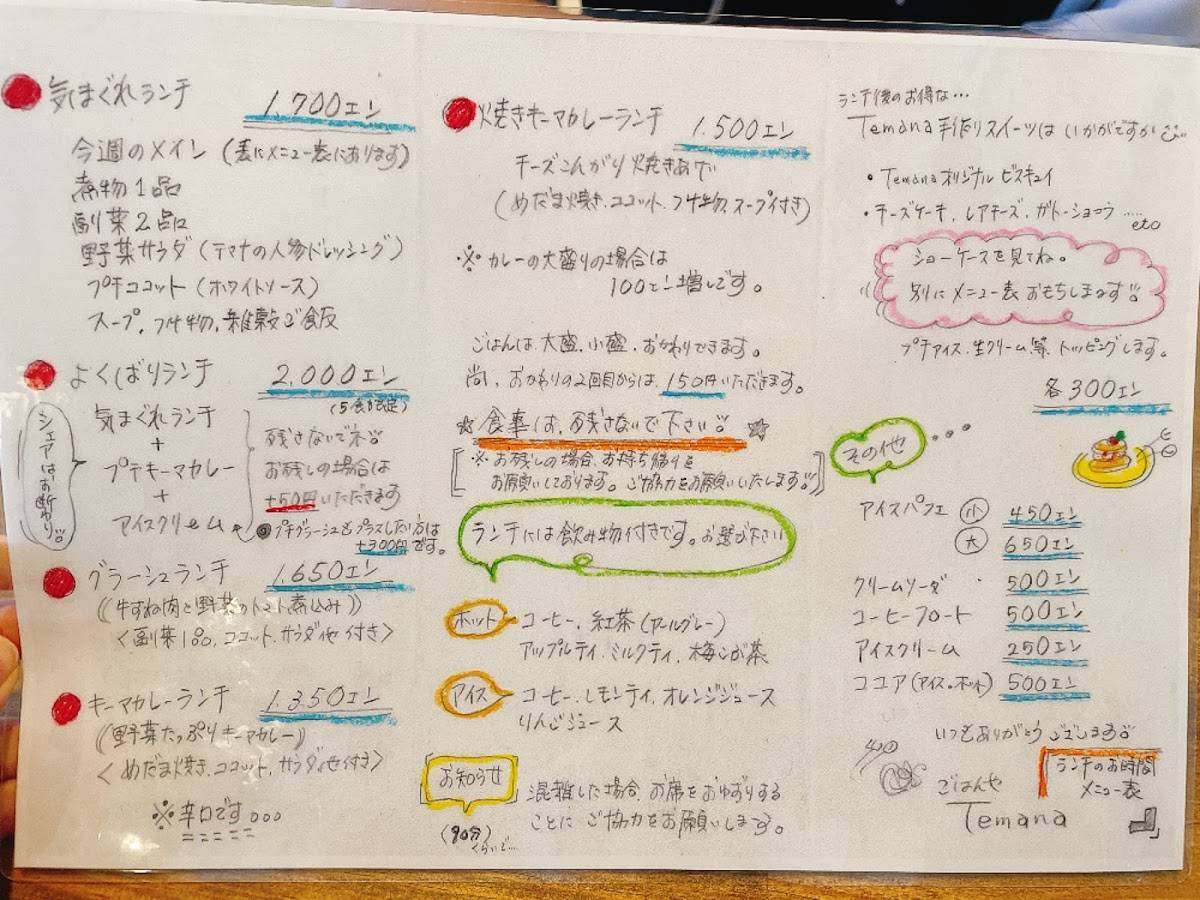 気まぐれランチ 1.700エン
今週のメイン(表にメニュー表にあります)
煮物1品
副菜2品
野菜サラダ(テマナの人参ドレッシング)
プチココット(ホワイトソース)
スープ.つけ物.雑穀ご飯
よくばりランチ 2.000エン
(5食限定)
シェアはお断わり
気まぐれランチ
+
プチキーマカレー
+
アイスクリーム
残さないでネ
お残しの場合は
+50円いただきます
プチグラーシュもプラスしたい方は
+300円です。
グラーシュランチ 1.650エン
((牛すね肉と野菜のトマト煮込み))
<副菜1品,ココット.サラダ付き>
キーマカレーランチ 1.350エン
((野菜たっぷりキーマカレー))
<めだま焼き.ココット.サラダ付き>
※辛口です。。。
焼きキーマカレーランチ 1.500エン
チーズこんがり焼きあげ
(めだま焼き.ココット.つけ物.スープ付き)
※カレーの大盛りの場合は
100エン増しです。
ごはんは.大盛.小盛.おかわりできます。
尚.おかわりの2回目からは.150円いただきます。
☆食事は.残さないで下さい☆
※お残しの場合.お持ち帰りを
お願いしております。ご協力をお願いいたします
ランチには飲み物付きです。お選び下さい
ホット コーヒー.紅茶(アールグレー)
アップルティ.ミルクティ.梅こぶ茶
アイス コーヒー.レモンティ.オレンジジュース
りんごジュース
お知らせ 混雑した場合.お席をおゆずりする
ことに ご協力をお願いします。
(90分)
くらいで...
ランチ後のお得な...
Temana手作りスイーツは いかがですか
・Temanaオリジナル ビスキュイ
・チーズケーキ.レアチーズ.ガトーショコラ.....
etc
ショーケースを見てね。
別にメニュー表おもちします
プチアイス.生クリーム等.トッピングします。
各300エン
その他...
アイスパフェ 小 450エン
大 650エン
クリームソーダ 500エン
コーヒーフロート 500エン
アイスクリーム 250エン
ココア(アイス・ホット) 500エン
いつもありがとうございます
ランチのお時間
メニュー表
ごはんや
Temana